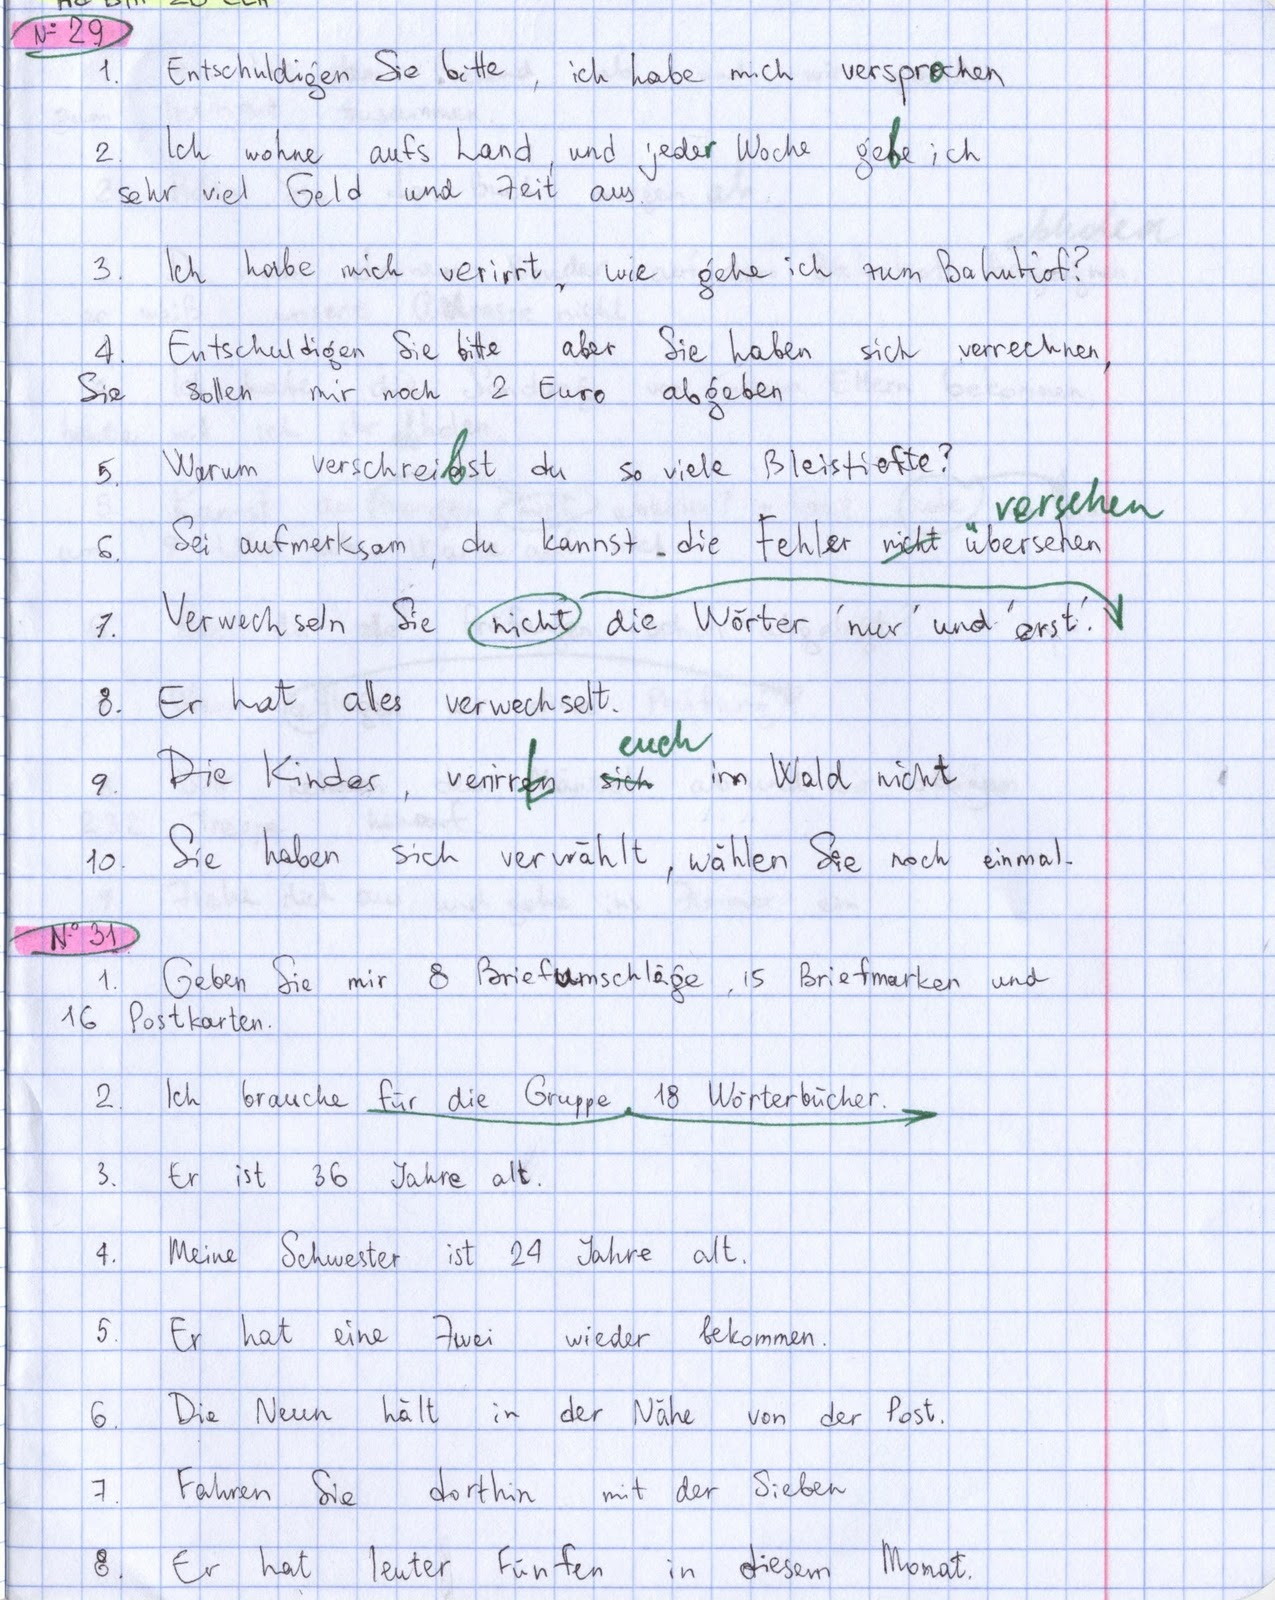 № 29
1. Entschuldigen Sie bitte, ich habe mich versprochen
2. Ich wohne aufs Land, und jeder Woche gebe ich
sehr viel Geld und Zeit aus.
3. Ich habe mich verirrt, wie gehe ich zum Bahnhof?
4. Entschuldigen Sie bitte aber Sie haben sich verrechnen,
Sie sollen mir noch 2 Euro abgeben
5. Warum verschreibst du so viele Bleistiefte?
versehen
6. Sei aufmerksam, du kannst die Fehler nicht übersehen
7. Verwechseln Sie nicht die Wörter 'nur' und 'erst'.
8. Er hat alles verwechselt.
euch
9. Die Kinder, verirrt sich im Wald nicht
10. Sie haben sich verwählt, wählen Sie noch einmal.
№ 31
1. Geben Sie mir 8 Briefumschläge, 15 Briefmarken und
16 Postkarten.
2. Ich brauche für die Gruppe 18 Wörterbücher.
3. Er ist 36 Jahre alt.
4. Meine Schwester ist 24 Jahre alt.
5. Er hat eine Zwei wieder bekommen.
6. Die Neun hält in der Nähe von der Post.
7. Fahren Sie dorthin mit der Sieben
8. Er hat leuter Fünfen in diesem Monat.